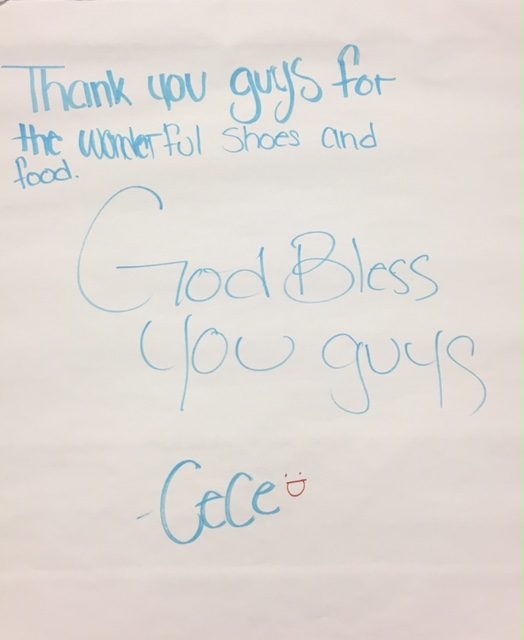 Thank you guys for
the wonderful shoes and
food.
God Bless
you guys
-CeCe